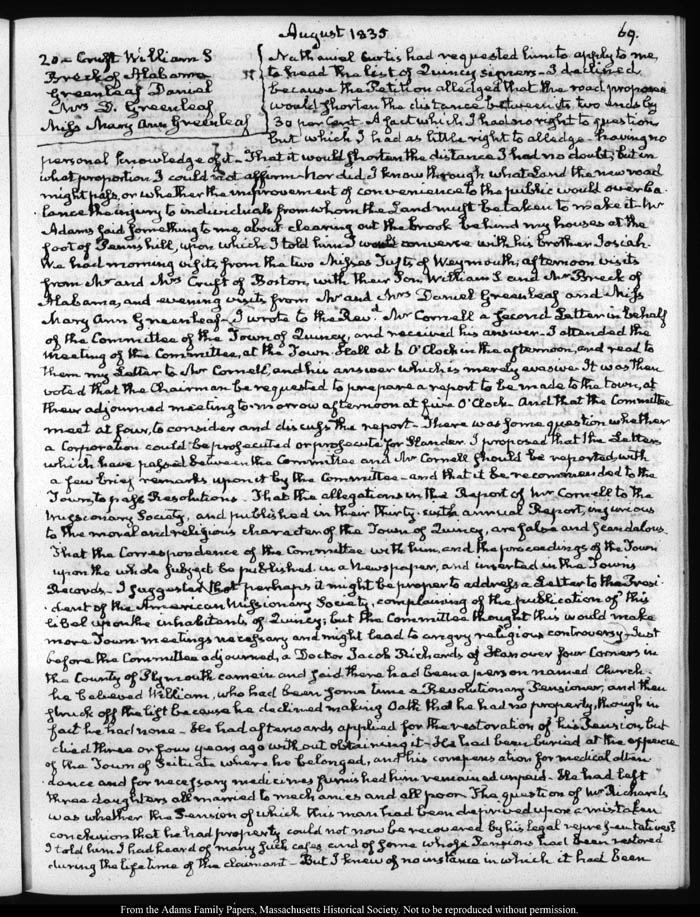 August 1835
69.
20. Cruft William S
Breck of Alabama
Greenleaf Daniel
Mrs D. Greenleaf
Miss Mary Ann Greenleaf
Nathaniel Curtis had requested him to apply to me,
to head the list of Quincy signers. I declined
because the Petition alledged that the road proposed
would shorten the distance between its two ends by
30 per Cent. A fact which I had no right to question
but which I had as little right to alledge having no
personal knowledge of it. That it would shorten the distance I had no doubt; but in
what proportion I could not affirm. Nor did I know through what Land the new road
might pass, or whether the improvement of convenience to the public would overba-
lance the injury to individuals from whom the Land must be taken to make it. Mr
Adams said something to me, about clearing out the brook behind my houses at the
foot of Penn's hill, upon which I told him I would converse with his brother Josiah.
We had morning visits from the two Misses Tufts of Weymouth; afternoon visits
from Mr and Mrs Cruft of Boston, with their Son William S. and Mr Breck of
Alabama, and evening visits from Mr and Mrs Daniel Greenleaf and Miss
Mary Ann Greenleaf. I wrote to the Revd Mr Cornell a second Letter in behalf
of the Committee of the Town of Quincy, and received his answer. I attended the
meeting of the Committee, at the Town Hall at 6 O'Clock in the afternoon, and read to
them my Letter to Mr Cornell, and his answer which is merely evasive. It was then
voted that the Chairman be requested to prepare a report to be made to the town, at
their adjourned meeting to-morrow afternoon at five O'Clock. And that the Committee
meet at four, to consider and discuss the report. There was some question whether
a Corporation could be prosecuted or prosecute for Slander. I proposed that the Letters
which have passed between the Committee and Mr Cornell should be reported, with
a few brief remarks upon it by the Committee and that it be recommended to the
Town, to pass Resolutions. That the allegations in the Report of Mr Cornell to the
Missionary Society, and published in their thirty-sixth annual Report, injurious
to the moral and religious character of the Town of Quincy, are false and scandalous.
That the Correspondence of the Committee with him, and the proceedings of the Town
upon the whole subject be published in a Newspaper, and inserted in the Towns
Records. I suggested that perhaps it might be proper to address a Letter to the Presi-
dent of the American Missionary Society, complaining of the publication of this
libel upon the inhabitants of Quincy; but the Committee thought this would make
more Town-meetings necessary and might lead to angry religious controversy. Just
before the Committee adjourned, a Doctor Jacob Richards of Hanover four Corners in
the County of Plymouth came in and said there had been a person named Church
he believed William, who had been some time a Revolutionary Pensioner, and then
struck off the list because he declined making Oath that he had no property, though in
fact he had none. He had afterwards applied for the restoration of his Pension but
died three or four years ago without obtaining it. He had been buried at the expence
of the Town of Scituate where he belonged, and his compensation for medical atten-
dance and for necessary medicines furnished him remained unpaid. He had left
three daughters all married to mechanics and all poor. The question of Mr Richards
was whether the Pension of which this man had been deprived upon a mistaken
conclusion that he had property could not now be recovered by his legal representatives?
I told him I had heard of many such cases and of some whose Pensions had been restored
during the life time of the claimant. But I knew of no instance in which it had been
From the Adams Family Papers, Massachusetts Historical Society. Not to be reproduced without permission.